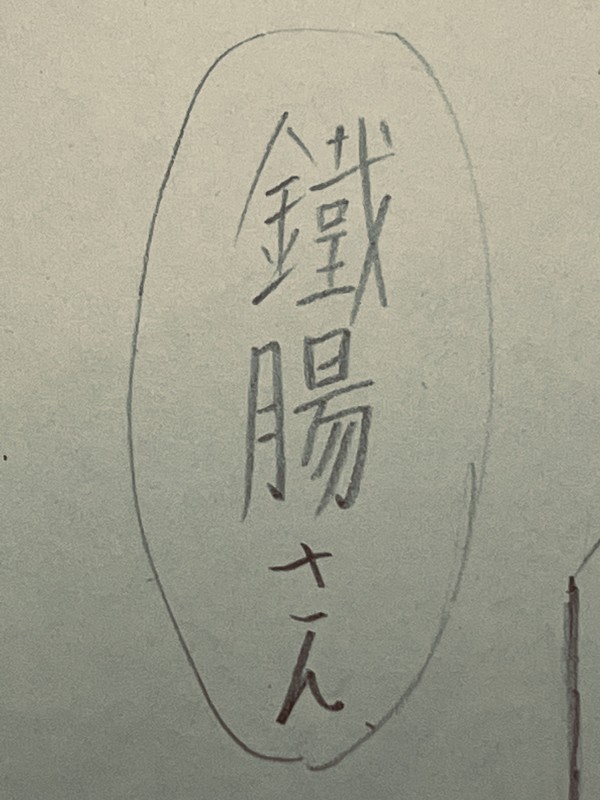 鐵腸さん